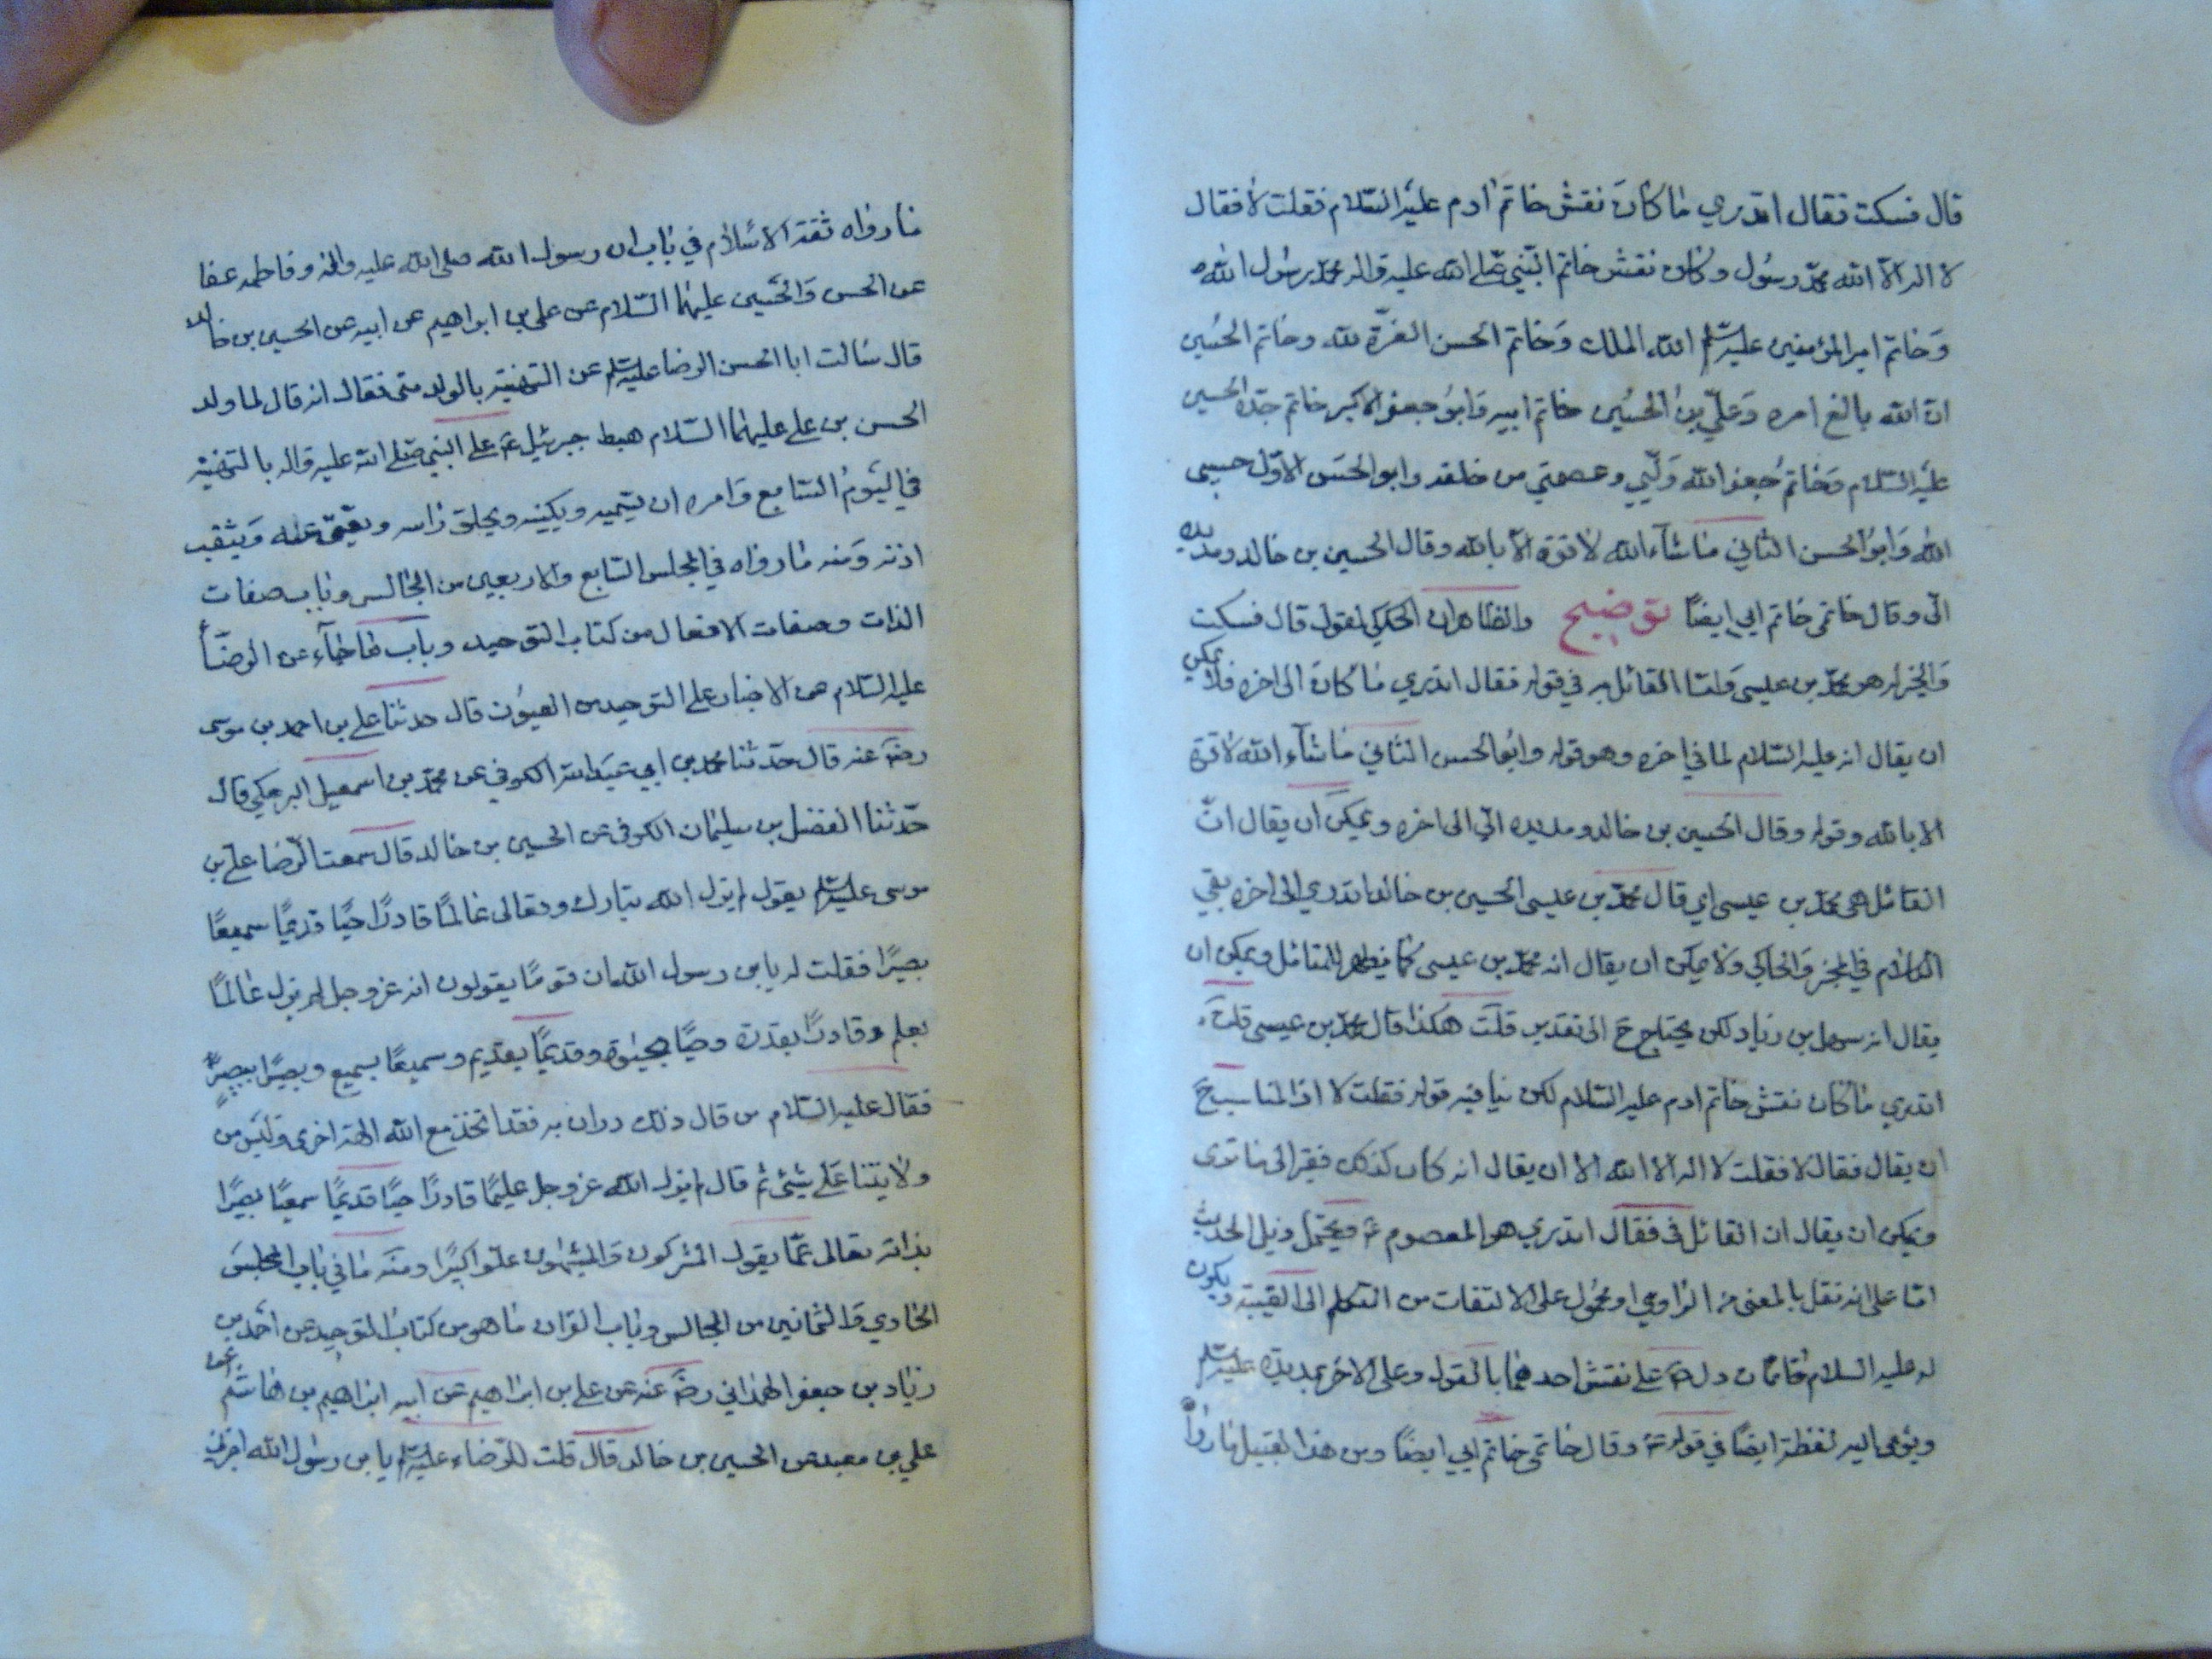 قال فسكت فقال اتدري ما كان نقش خاتم ادم عليه السلام فقلت لا فقال
لا اله الا الله محمد رسول وكان نقش خاتم النبي صلى الله عليه واله محمد رسول الله
وخاتم امير المؤمنين عليه السلم الله الملك وخاتم الحسن العزة لله وخاتم الحسين
ان الله بالغ امره وعلي بن الحسين خاتم ابيه وابو جعفر الاكبر خاتم جده الحسين
عليه السلام وخاتم جعفر الله وليي وعصمتي من خلقه وابو الحسن الاول حسبي
الله وابو الحسن الثاني ما شاء الله لا قوة الا بالله وقال الحسين بن خالد ومد يده
الي وقال خاتمي خاتم ابي ايضا توضيح والظاهر ان الحكي لقوله قال فسكت
والمخبر له هو محمد بن عيسى واما القائل به في قوله فقال اتدري ما كان الى اخره فلا يمكن
ان يقال انه عليه السلام لما في اخره وهو قوله وابو الحسن الثاني ما شاء الله لا قوة
الا بالله وقوله وقال الحسين بن خالد ومد يده الي الى اخره ويمكن ان يقال ان
القائل هو محمد بن عيسى اي قال محمد بن عيسى الحسين بن خالد اتدري الى اخره بقي
الكلام في المخبر والحاكي ولا يمكن ان يقال انه محمد بن عيسى كما يظهر للمتامل ويمكن ان
يقال انه سهل بن زياد لكن يحتاج ح الى تقدير قلت هكذا قال محمد بن عيسى قلت
اتدري ما كان نقش خاتم ادم عليه السلام لكن ينافيه قوله فقلت لا اذ المناسب ح
ان يقال فقال لا فقلت لا اله الا الله الا ان يقال انه كان كذلك فغير الى ما ترى
ويمكن ان يقال ان القائل في فقال اتدري هو المعصوم ع ويحتمل ذيل الحديث
اما على انه نقل بالمعنى من الراوي او محمول على الالتفات من التكلم الى الغيبة ويكون
له عليه السلام خاتمان دل على نقش احدهما بالقول وعلى الاخر بمد يده عليه السلم
ويؤمى اليه لفظة ايضا في قوله ع وقال خاتمي خاتم ابي ايضا ومن هذا القبيل ما رواه
ما رواه ثقة الاسلام في باب ان رسول الله صلى الله عليه واله وفاطمه عقا
عن الحسن والحسين عليهما السلام عن علي بن ابراهيم عن ابيه عن الحسين بن خالد
قال سالت ابا الحسن الرضا عليه السلم عن التهنية بالولد متى فقال انه قال لما ولد
الحسن بن علي عليهما السلام هبط جبرئيل ع على النبي صلى الله عليه واله بالتهنية
في اليوم السابع وامره ان يسميه ويكنيه ويحلق راسه ويعق عنه ويثقب
اذنه ومنه ما رواه في المجلس السابع والاربعين من المجالس وباب صفات
الذات وصفات الافعال من كتاب التوحيد وباب ما جاء عن الرضا
عليه السلام من الاخبار على التوحيد من العيون قال حدثنا علي بن احمد بن موسى
رضي عنه قال حدثنا محمد بن ابي عبد الله الكوفي عن محمد بن اسمعيل البرمكي قال
حدثنا الفضل بن سليمان الكوفي عن الحسين بن خالد قال سمعت الرضا علي بن
موسى عليه السلم يقول لم يزل الله تبارك وتعالى عالما قادرا حيا قديما سميعا
بصيرا فقلت له يا بن رسول الله ان قوما يقولون انه عز وجل لم يزل عالما
بعلم وقادرا بقدرة وحيا بحيوة وقديما بقديم وسميعا بسميع وبصيرا ببصير
فقال عليه السلام من قال ذلك ودان به فقد اتخذ مع الله الهة اخرى وليس من
ولايتنا على شيئ ثم قال لم يزل الله عز وجل عليما قادرا حيا قديما سميعا بصيرا
بذاته تعالى عما يقول المشركون والمشبهون علوا كبيرا ومنه ما في باب المجلس
الحادي والثمانين من المجالس وباب القران ما هو من كتاب التوحيد عن احمد بن
زياد بن جعفر الهمداني رض عنه عن علي بن ابراهيم عن ابيه ابراهيم بن هاشم عن
علي بن معبد عن الحسين بن خالد قال قلت للرضاء عليه السلم يا بن رسول الله اخبرني